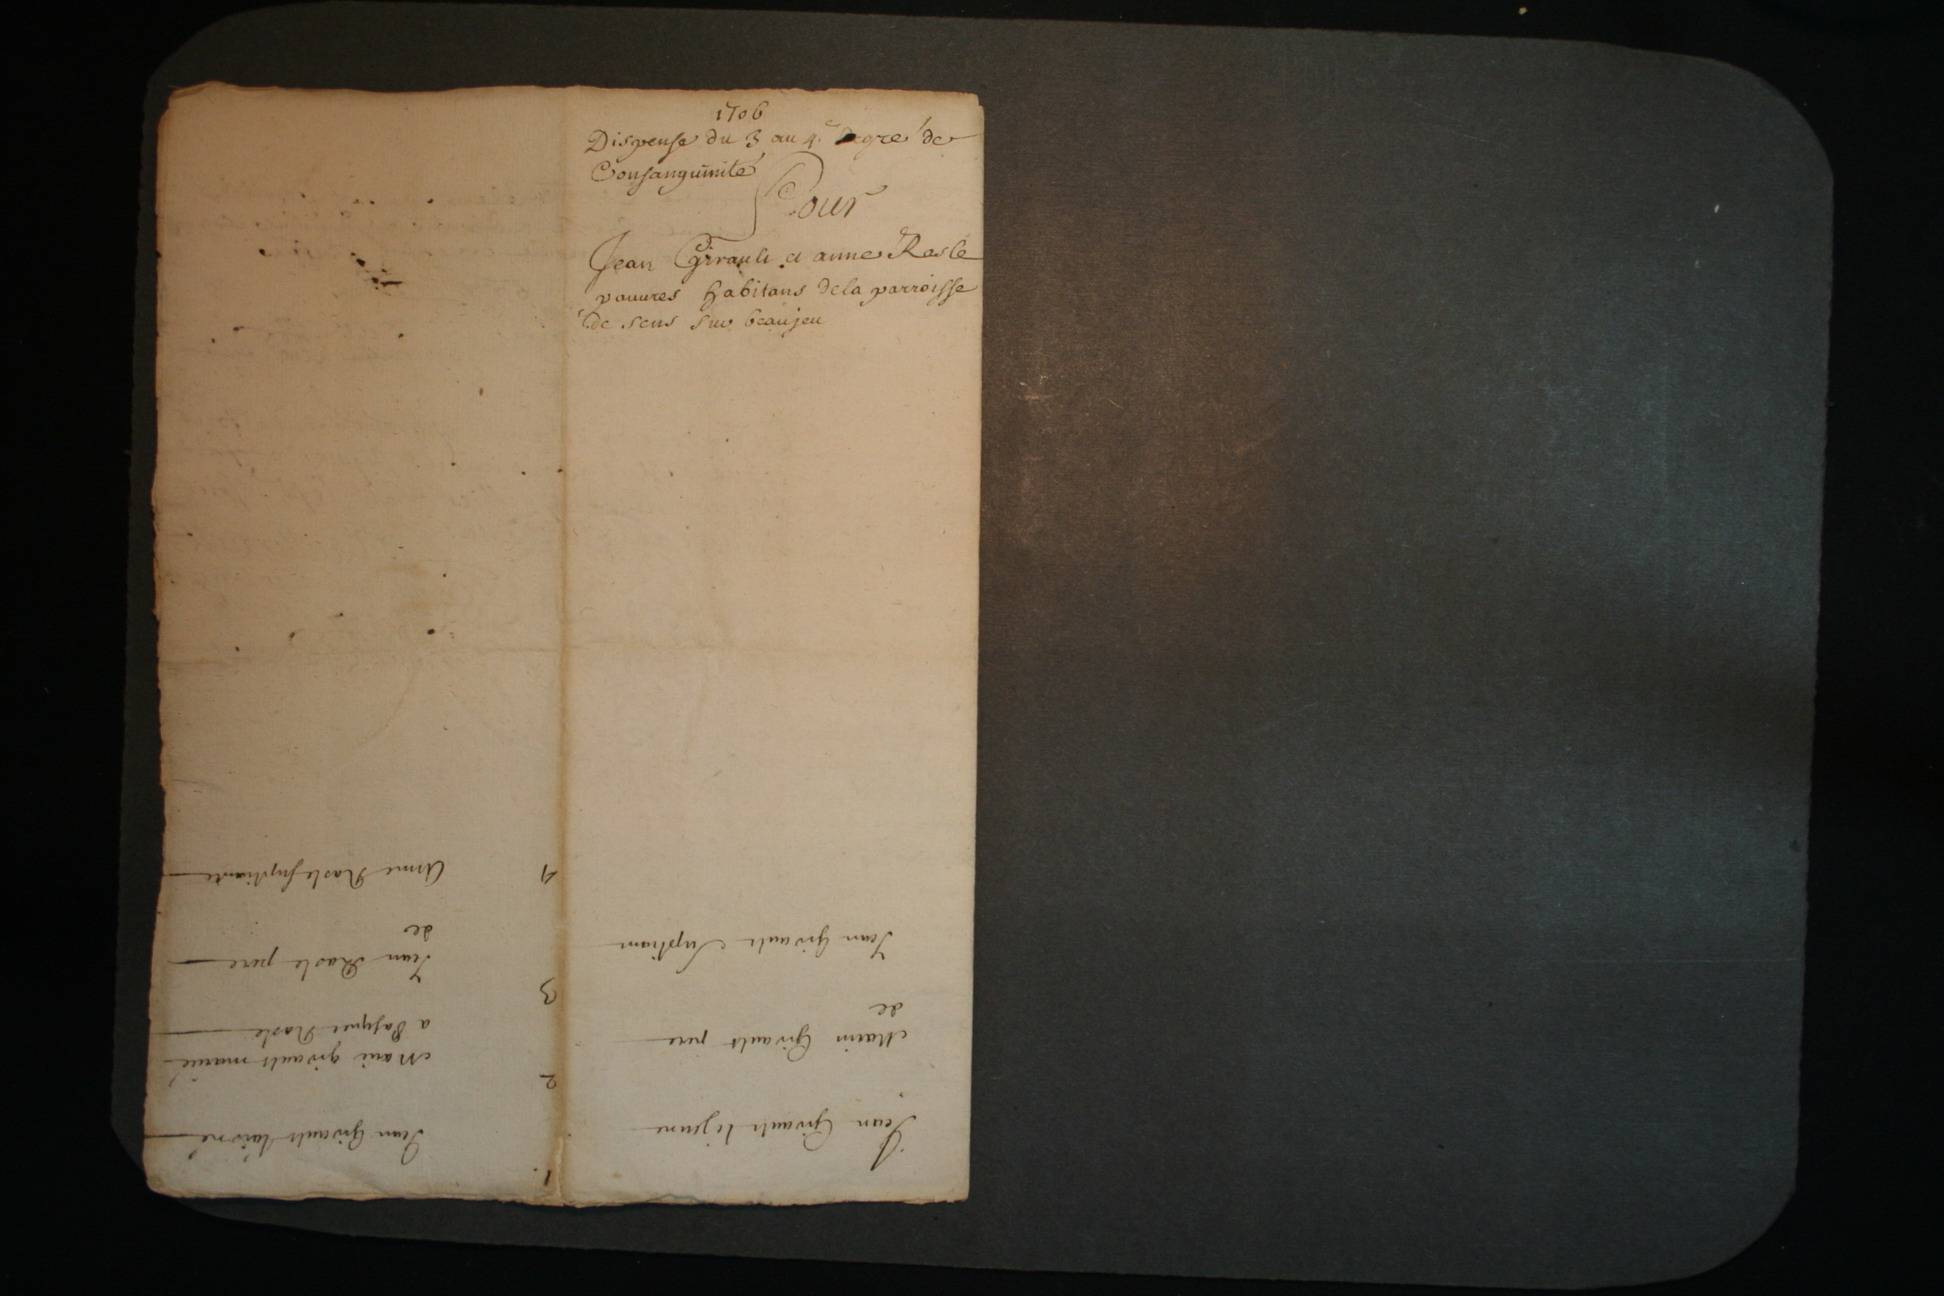 1706
Dispense du 3 au 4.e degré de
Consanguinité
Pour
Jean Girault et anne Rasle
pauures habitans dela parroisse
de sens sur beaujeu
1.
Jean Girault le jeune
Jean Girault laisné
2
Marin Girault pere
de
Marie girault marieé
a Jasques Rasle
3
Jean Girault Supliant
Jean Rasle pere
de
4
Anne Rasle supliante